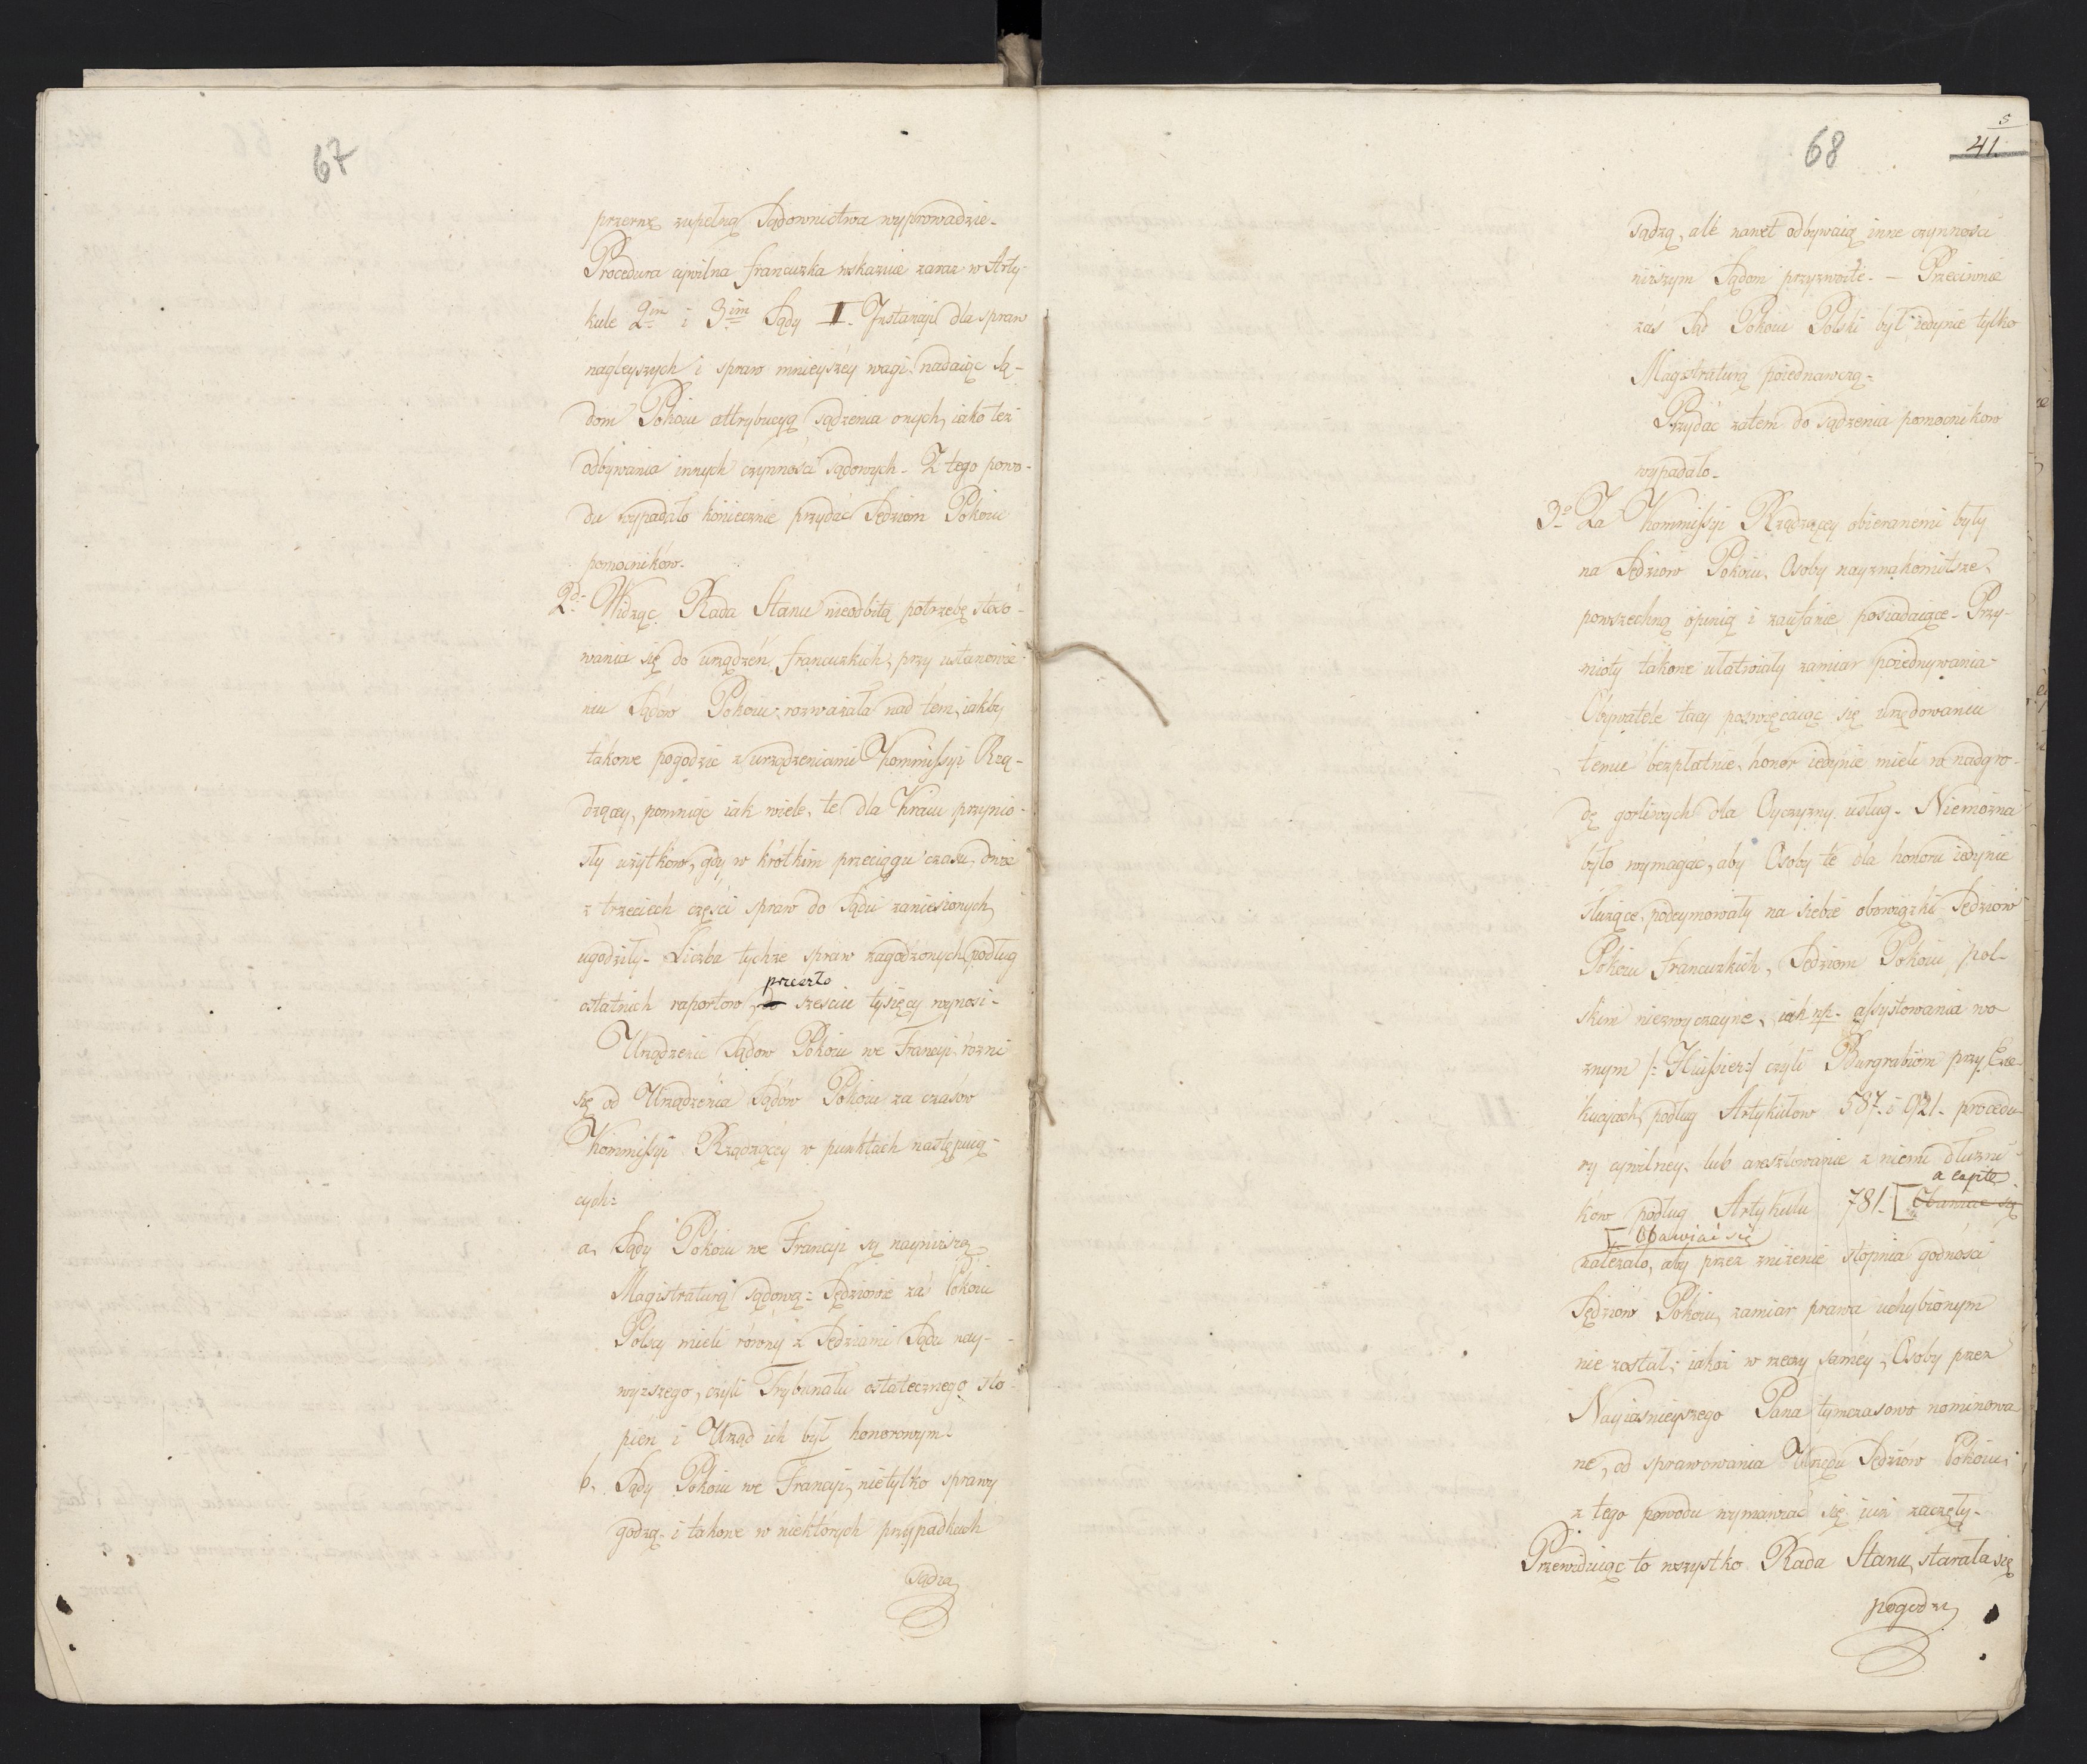 67
przerwę zupełną Sądownictwa wyprowadzie-
Procedura cywilna francuzka wskazuie zaraz w Arty-
kule 2im i 3im Sądy II. Instancyi dla spraw
nagleyszych i spraw mnieyszéy wagi, nadaiąc Są-
dom Pokoiu attrybucyą sądzenia onych, iako też
odbywania innych czynności sądowych. Z tego powo-
du wypadało koniecznie przydać Sędziom Pokoiu
pomocników.
2do Widząc Rada Stanu nieodbitą potrzebę stoso-
wania się do urządzeń francuzkich, przy ustanowie-
niu Sądów Pokoiu, rozważała nad tém, iakby
takowe pogodzić z urządzeniami Kommissyi Rzą-
dzącey, pomniąc iak wiele te dla Kraiu przynio-
sły użytków, gdy w krótkim przeciągu czasu, dwie
z trzeciech części spraw do Sądu zaniesionych
ugodziły. Liczba tychże spraw zagodzonych podług
przeszło
ostatnich raportow, do sześciu tysięcy wynosi-
Urządzenie Sądow Pokoiu we Francyi różni
się od Urządzenia Sądów Pokoiu za czasow
Kommissyi Rządzącéy w punktach następuią-
cych:
a, Sądy Pokoiu we Francyi są nayniższą
Magistraturą sądową: Sędziowie zaś Pokoiu
Polscy mieli równy z Sędziami Sądu nay-
wyższego, czyli Trybunału ostatecznego sto-
pień i Urząd ich był honorowym.
b, Sądy Pokoiu we Francyi, nietylko sprawy
godzą i takowe w niektórych przypadkach
sądzą
68
5
41.
sądzą, ale nawet odbywaią inne czynności
niższym Sądom przyzwoite. — Przeciwnie
zaś Sąd Pokoiu Polski był iedynie tylko
Magistraturą poiednawczą.
Przydać zatém do sądzenia pomocnikow
wypadało.
3o Za Kommissyi Rządzącey obieranemi były
na Sędziow Pokoiu, Osoby nayznakomitsze,
powszechną opinią i zaufanie posiadaiące. Przy-
mioty takowe ułatwiały zamiar poiednywania
Obywatele tacy poświęcaiąc się urzędowaniu
temu bezpłatnie, honor iedynie mieli w nadgro-
dę gorliwych dla Oyczyzny usług. Niemożna
było wymagać, aby Osoby te dla honoru iedynie
służące, podeymowały na siebie obowiązki Sędziow
Pokoiu francuzkich, Sędziom Pokoiu pol-
skim niezwyczayne, iak np. assystowania wo
znym /: Huissier :/ czyli Burgrabiom przy Exe-
kucyach, podług Artykułow 587. i 921. procedu-
ry cywilnéy, lub aresztowanie z niemi dłużni
a capite
ków podług Artykułu 781. [Obawiać się
[Obawiać się
należało, aby przez zniżenie stopnia godności
Sędziów Pokoiu, zamiar prawa uchybionym
nie został; iakoż w rzeczy saméy, Osoby przez
Nayiaśnieyszego Pana tymczasowo nominowa
ne, od sprawowania Urzędu Sędziów Pokoiu,
z tego powodu wymawiać się iuż zaczęły.
Przewiduiąc to wszystko Rada Stanu, starała się
pogodzi